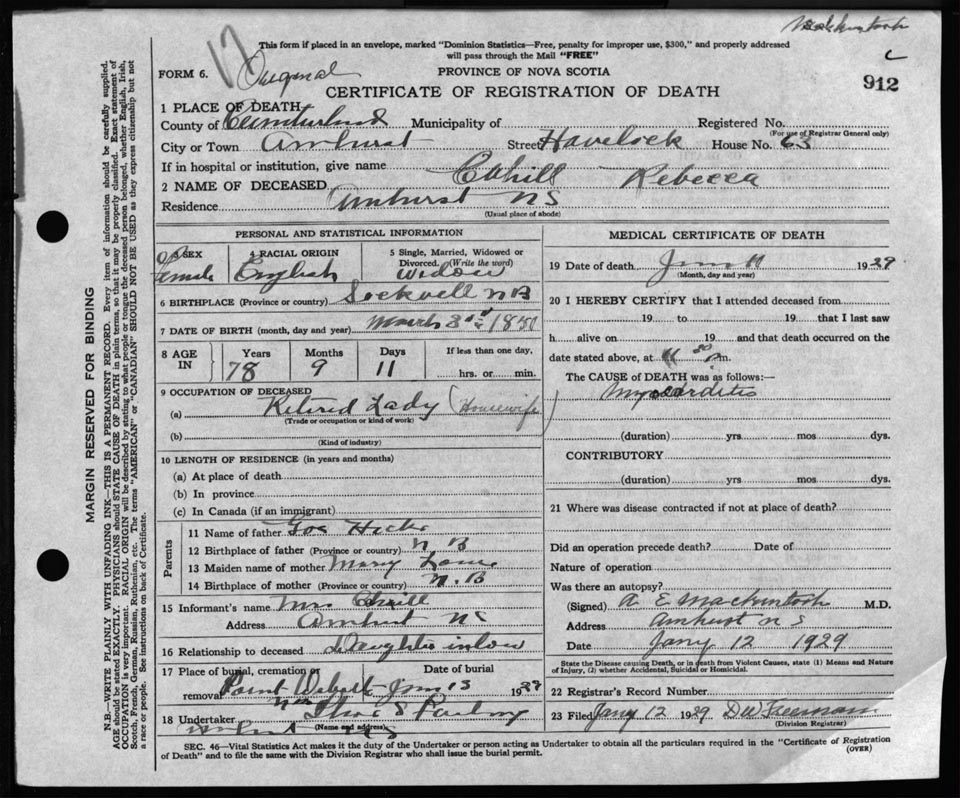 Mackintosh
This form if placed in an envelope, marked "Dominion Statistics—Free, penalty for improper use, $300," and properly addressed
will pass through the Mail "FREE"
FORM 6.
PROVINCE OF NOVA SCOTIA
CERTIFICATE OF REGISTRATION OF DEATH
912
1 PLACE OF DEATH
County of Cumberland Municipality of Registered No.
(For use of Registrar General only)
City or Town Amherst Street Havelock House No. 63
If in hospital or institution, give name
2 NAME OF DECEASED Cahill Rebecca
Residence Amherst NS
(Usual place of abode)
MARGIN RESERVED FOR BINDING
N.B.—WRITE PLAINLY WITH UNFADING INK—THIS IS A PERMANENT RECORD. Every item of information should be carefully supplied.
AGE should be stated EXACTLY. PHYSICIANS should STATE CAUSE OF DEATH in plain terms, so that it may be properly classified. Exact statement of
OCCUPATION is very important. RACIAL ORIGIN will be described by stating to what people or tongue the deceased person belonged, whether English, Irish,
Scotch, French, German, Russian, Ruthenian, etc. The terms "AMERICAN" or "CANADIAN" SHOULD NOT BE USED as they express citizenship but not
a race or people. See instructions on back of Certificate.
PERSONAL AND STATISTICAL INFORMATION
3 SEX
Female
4 RACIAL ORIGIN
English
5 Single, Married, Widowed or
Divorced. (Write the word)
Widow
6 BIRTHPLACE (Province or country) NB
7 DATE OF BIRTH (month, day and year) March 1850
8 AGE
IN
Years
78
Months
9
Days
11
If less than one day,
hrs. or min.
9 OCCUPATION OF DECEASED
(a) Retired Lady (Housewife)
(Trade or occupation or kind of work)
(b)
(Kind of industry)
10 LENGTH OF RESIDENCE (in years and months)
(a) At place of death
(b) In province
(c) In Canada (if an immigrant)
Parents
11 Name of father Hicks
12 Birthplace of father (Province or country) N B
13 Maiden name of mother Mary
14 Birthplace of mother (Province or country) N.B
15 Informant's name Mrs Cahill
Address Amherst NS
16 Relationship to deceased Daughter inlaw
17 Place of burial, cremation or
removal Point
Date of burial
Jany 13 1929
18 Undertaker
(Name and address)
MEDICAL CERTIFICATE OF DEATH
19 Date of death 11 1929
(Month, day and year)
20 I HEREBY CERTIFY that I attended deceased from
19 to 19 that I last saw
h alive on 19 and that death occurred on the
date stated above, at 11 30 p m.
The CAUSE of DEATH was as follows:—
Myocarditis
(duration) yrs mos dys.
CONTRIBUTORY
(duration) yrs mos dys.
21 Where was disease contracted if not at place of death?
Did an operation precede death? Date of
Nature of operation
Was there an autopsy?
(Signed) A E Mackintosh M.D.
Address Amherst N S
Date Jany 12 1929
State the Disease causing Death, or in death from Violent Causes, state (1) Means and Nature
of Injury, (2) whether Accidental, Suicidal or Homicidal.
22 Registrar's Record Number
23 Filed Jany 12 1929 Freeman
(Division Registrar)
SEC. 46—Vital Statistics Act makes it the duty of the Undertaker or person acting as Undertaker to obtain all the particulars required in the "Certificate of Registration
of Death" and to file the same with the Division Registrar who shall issue the burial permit.
(OVER)